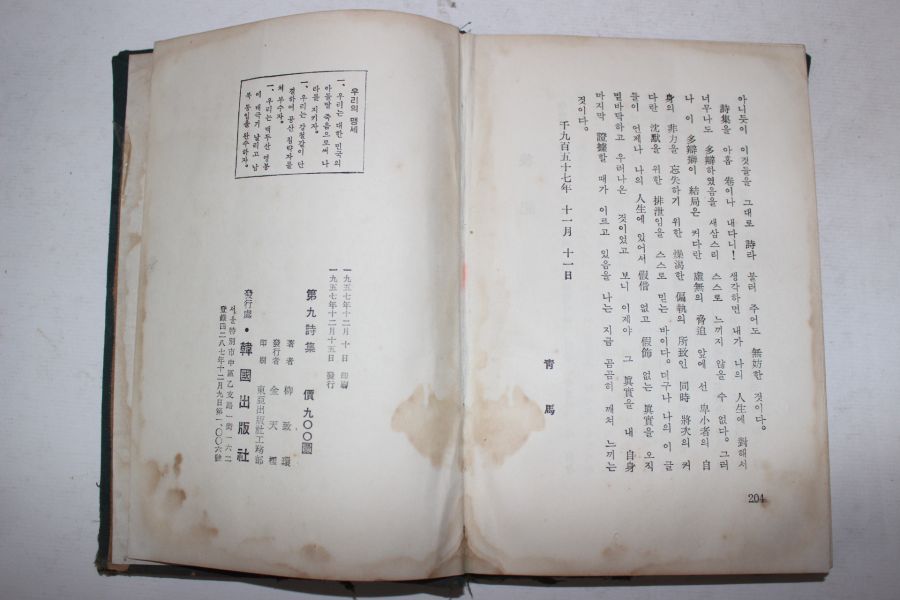 아니듯이 이것들을 그대로 詩라 불러 주어도 無妨한 것이다.
詩集을 아홉 卷이나 내다니! 생각하면 내가 나의 人生에 對해서
너무나도 多辯하였음을 새삼스리 스스로 느끼지 않을 수 없다. 그러
나 이 多辯이 結局은 커다란 虛無의 脅迫 앞에 선 卑小者의 自
身의 非力을 忘失하기 위한 燥渴한 偏執의 所致인 同時 將次의 커
다란 沈默을 위한 排泄임을 스스로 믿는 바이다. 더구나 나의 이 글
들이 언제나 나의 人生에 있어서 假借 없고 假飾 없는 眞實을 오직
밑바탕하고 우러나온 것이었고 보니 이제야 그 眞實을 내 自身
마지막 證據할 때가 이르고 있음을 나는 지금 곰곰히 깨쳐 느끼는
것이다.
千九百五十七年 十一月 十一日
靑 馬
204
우리의 맹세
一、우리는 대한 민국의
아들딸 죽음으로써 나
라를 지키자。
一、우리는 강철같이 단
결하여 공산 침략자를
쳐부수자。
一、우리는 백두산 영봉
에 태극기 날리고 남
북 통일을 완수하자。
一九五七年十二月十日 印刷
一九五七年十二月十五日 發行
第九詩集 價 九〇〇圜
著者 柳致環
發行者 金天
印刷 東亞出版社工務部
發行處・韓國出版社
서울特別市中區乙支路一街一六二
登錄四二八七年十二月九日第一〇〇六號